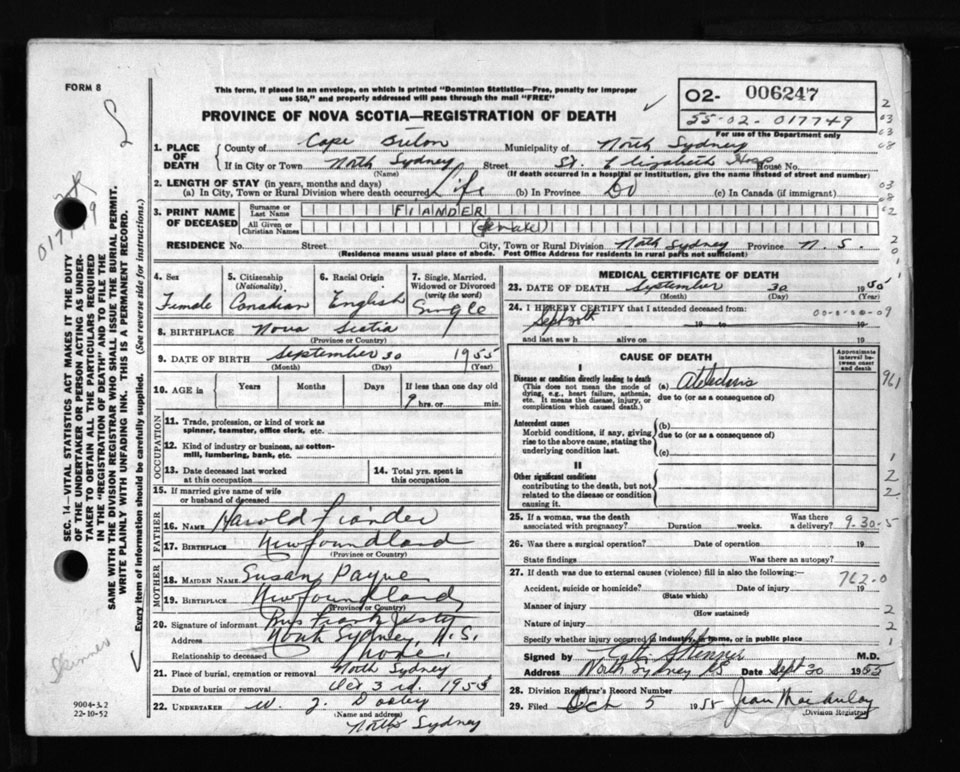 FORM 8
This form, if placed in an envelope, on which is printed "Dominion Statistics—Free, penalty for improper
use $50," and properly addressed will pass through the mail "FREE"
02- 006247
55-02-017749
For use of the Department only
PROVINCE OF NOVA SCOTIA—REGISTRATION OF DEATH
1. PLACE OF DEATH
County of Cape Breton Municipality of North Sydney
If in City or Town North Sydney Street St. Elizabeth Hosp House No.
(Name) (If death occurred in a hospital or institution, give the name instead of street and number)
2. LENGTH OF STAY (in years, months and days)
(a) In City, Town or Rural Division where death occurred Life (b) In Province Do (c) In Canada (if immigrant)
3. PRINT NAME OF DECEASED
Surname or Last Name FIANDER
All Given or Christian Names (female)
RESIDENCE No. Street City, Town or Rural Division North Sydney Province N.S.
(Residence means usual place of abode. Post Office Address for residents in rural parts not sufficient)
4. Sex Female
5. Citizenship (Nationality) Canadian
6. Racial Origin English
7. Single, Married, Widowed or Divorced (write the word) Single
8. BIRTHPLACE Nova Scotia
(Province or Country)
9. DATE OF BIRTH September 30 1955
(Month) (Day) (Year)
10. AGE in Years Months Days If less than one day old
9 hrs. or min.
OCCUPATION
11. Trade, profession, or kind of work as spinner, teamster, office clerk, etc.
12. Kind of industry or business, as cotton-mill, lumbering, bank, etc.
13. Date deceased last worked at this occupation
14. Total yrs. spent in this occupation
15. If married give name of wife or husband of deceased
FATHER
16. NAME Harold Fiander
17. BIRTHPLACE Newfoundland
(Province or Country)
MOTHER
18. MAIDEN NAME Susan Payne
19. BIRTHPLACE Newfoundland
(Province or Country)
20. Signature of informant Mrs Frank
Address North Sydney, N.S.
Relationship to deceased
21. Place of burial, cremation or removal North Sydney
Date of burial or removal Oct 3rd. 1955
22. UNDERTAKER W. J. Dooley
(Name and address)
North Sydney
MEDICAL CERTIFICATE OF DEATH
23. DATE OF DEATH September 30 1955
(Month) (Day) (Year)
24. I HEREBY CERTIFY that I attended deceased from:
Sept 30th 19 to 19
and last saw h alive on 19
CAUSE OF DEATH
Approximate interval between onset and death
I
Disease or condition directly leading to death
(This does not mean the mode of dying, e.g., heart failure, asthenia, etc. It means the disease, injury, or complication which caused death.)
(a)
due to (or as a consequence of)
Antecedent causes
Morbid conditions, if any, giving rise to the above cause, stating the underlying condition last.
(b)
due to (or as a consequence of)
(c)
II
Other significant conditions
contributing to the death, but not related to the disease or condition causing it.
25. If a woman, was the death associated with pregnancy? Duration weeks. Was there a delivery? 9-30-5
26. Was there a surgical operation? Date of operation 19
State findings Was there an autopsy?
27. If death was due to external causes (violence) fill in also the following:— 762-0
Accident, suicide or homicide? Date of injury 19
(State which)
Manner of injury
(How sustained)
Nature of injury
Specify whether injury occurred in industry, in home, or in public place
Signed by Skinner M.D.
Address North Sydney NS Date Sept 30 1955
28. Division Registrar's Record Number
29. Filed Oct 5 1955 Jean MacAulay
Division Registrar
SEC. 14—VITAL STATISTICS ACT MAKES IT THE DUTY
OF THE UNDERTAKER OR PERSON ACTING AS UNDER-
TAKER TO OBTAIN ALL THE PARTICULARS REQUIRED
IN THE "REGISTRATION OF DEATH" AND TO FILE THE
SAME WITH THE DIVISION REGISTRAR WHO SHALL ISSUE THE BURIAL PERMIT.
WRITE PLAINLY WITH UNFADING INK. THIS IS A PERMANENT RECORD.
Every item of information should be carefully supplied. (See reverse side for instructions.)
Skinner
9004-3.2
22-10-52